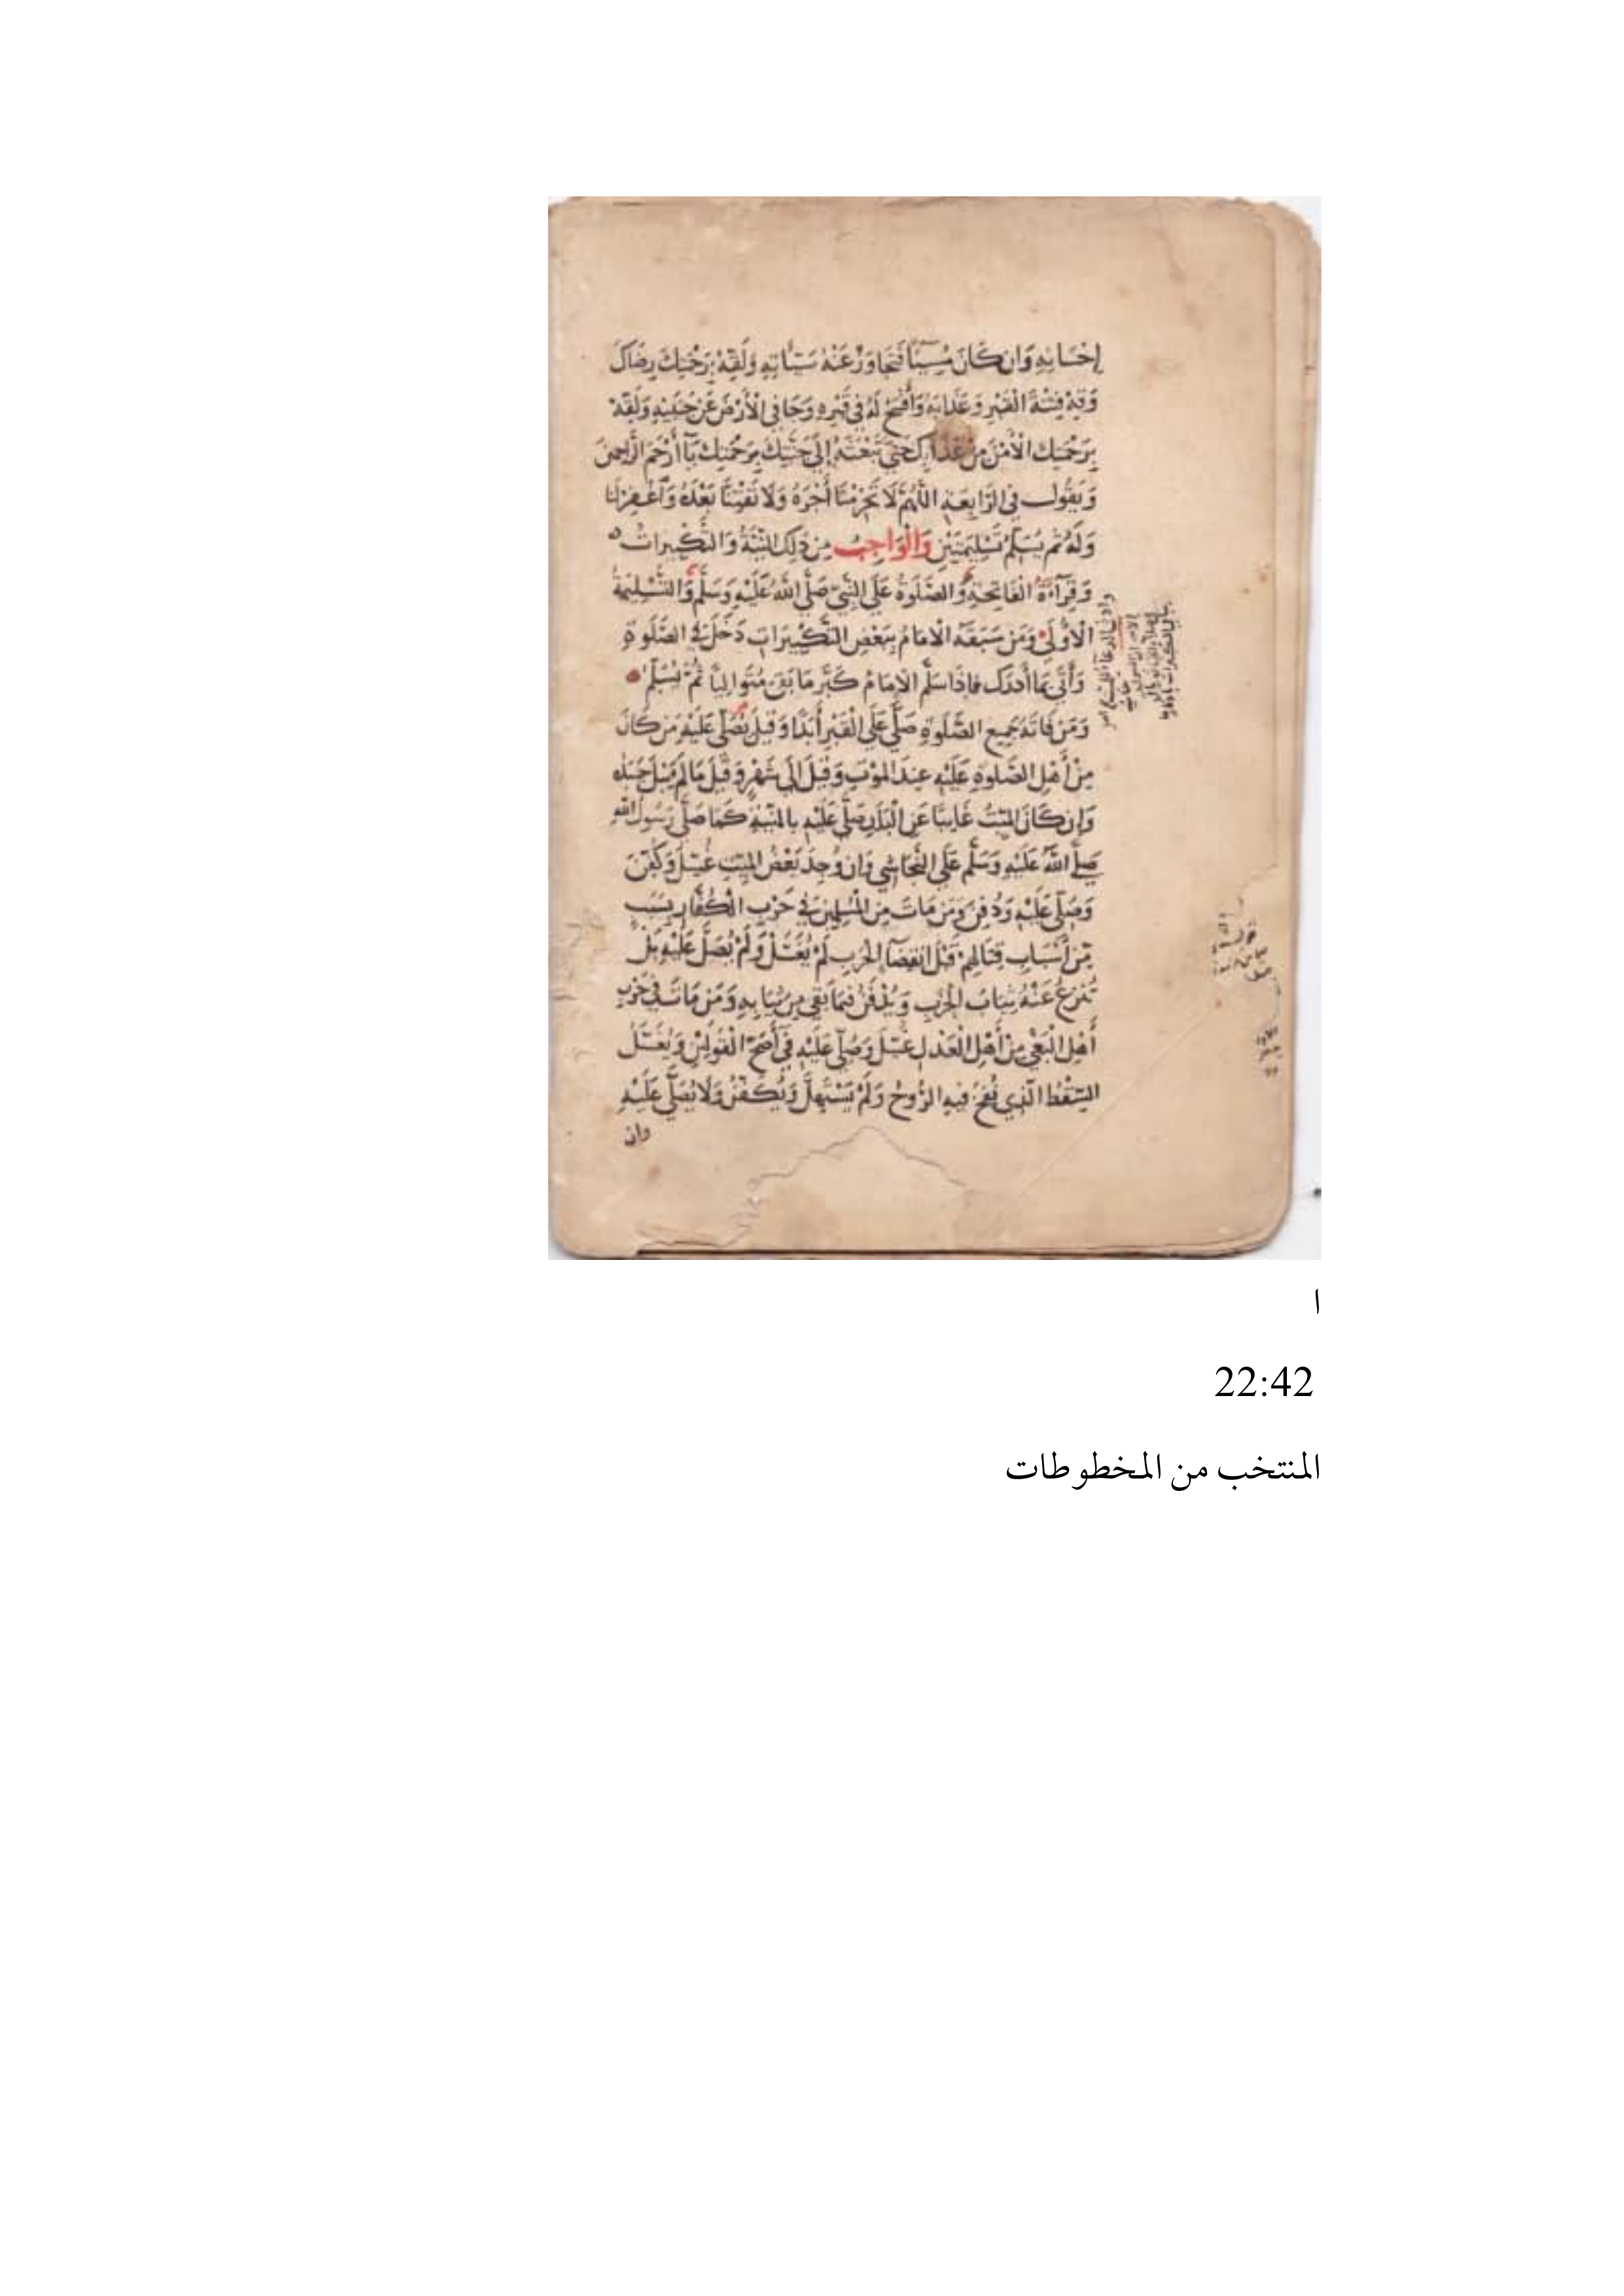 إحْسَانِهِ وَان كَانَ مُسِيْئًا فَتَجَاوَزْ عَنْهُ سَيِّئَاتِهِ وَلَقِّهْ بِرَحْمَتِكَ رِضَاكَ
وَقِهْ فِتْنَةَ الْقَبْرِ وَعَذَابَهُ وَأَفْسِحْ لَهُ فِي قَبْرِهِ وَجَافِ الْأَرْضَ عَنْ جَنْبَيْهِ وَلَقِّهْ
بِرَحْمَتِكَ الْأَمْنَ مِنْ عَذَابِكَ حَتَّى تَبْعَثَهُ إِلَى جَنَّتِكَ بِرَحْمَتِكَ يَآ أَرْحَمَ الرَّاحِمِينَ
وَيَقُولُ فِي الرَّابِعَةِ اللَّهُمَّ لَا تَحْرِمْنَا أَجْرَهُ وَلَا تَفْتِنَّا بَعْدَهُ وَأَغْفِرْ لَنَا
وَلَهُ ثُمَّ يُسَلِّمُ تَسْلِيمَتَيْنِ وَالْوَاجِبُ مِنْ ذَلِكَ النِّيَّةُ وَالتَّكْبِيرَاتُ
وَقِرَآءَةُ الْفَاتِحَةِ وَالصَّلَوةُ عَلَى النَّبِيِّ صَلَّى اللهُ عَلَيْهِ وَسَلَّمَ وَالتَّسْلِيمَةُ
الْأُوْلَى وَمَنْ سَبَقَهُ الْإِمَامُ بِبَعْضِ التَّكْبِيرَاتِ دَخَلَ فِي الصَّلَوةِ
وَأَتَى بِمَا أَدْرَكَ فَإِذَا سَلَّمَ الْإِمَامُ كَبَّرَ مَا بَقِيَ مُتَوَالِيًا ثُمَّ يُسَلِّمُ
وَمَنْ فَاتَهُ جَمِيعُ الصَّلَوةِ صَلَّى عَلَى الْقَبْرِ أَبَدًا وَقِيلَ يُصَلِّي عَلَيْهِ مَنْ كَانَ
مِنْ أَهْلِ الصَّلَوةِ عَلَيْهِ عِنْدَ الْمَوْتِ وَقِيلَ إِلَى شَهْرٍ وَقِيلَ مَا لَمْ يَبْلَ جَسَدُهُ
وَإِن كَانَ الْمَيِّتُ غَائِبًا عَنِ الْبَلَدِ صَلَّى عَلَيْهِ بِالنِّيَّةِ كَمَا صَلَّى رَسُولُ اللهِ
صَلَّى اللهُ عَلَيْهِ وَسَلَّمَ عَلَى النَّجَاشِي وَإِنْ وُجِدَ بَعْضُ الْمَيِّتِ غُسِّلَ وَكُفِّنَ
وَصُلِّيَ عَلَيْهِ وَدُفِنَ وَمَنْ مَاتَ مِنَ الْمُسْلِمِينَ فِي حَرْبِ الْكُفَّارِ بِسَبَبٍ
مِنْ أَسْبَابِ قِتَالِهِمْ قَبْلَ انْقِضَآءِ الْحَرْبِ لَمْ يُغَسَّلْ وَلَمْ يُصَلَّ عَلَيْهِ بَلْ
تُنْزَعُ عَنْهُ ثِيَابُ الْحَرْبِ وَيُدْفَنُ فِيمَا بَقِيَ مِنْ ثِيَابِهِ وَمَنْ مَاتَ فِي حَرْبِ
أَهْلِ الْبَغْيِ مِنْ أَهْلِ الْعَدْلِ غُسِّلَ وَصُلِّيَ عَلَيْهِ فِي أَصَحِّ الْقَوْلَيْنِ وَيُغَسَّلُ
السِّقْطُ الَّذِي نُفِخَ فِيهِ الرُّوحُ وَلَمْ يَسْتَهِلَّ وَيُكَفَّنُ وَلَا يُصَلَّى عَلَيْهِ
وان
ا
22:42
المنتخب من المخطوطات